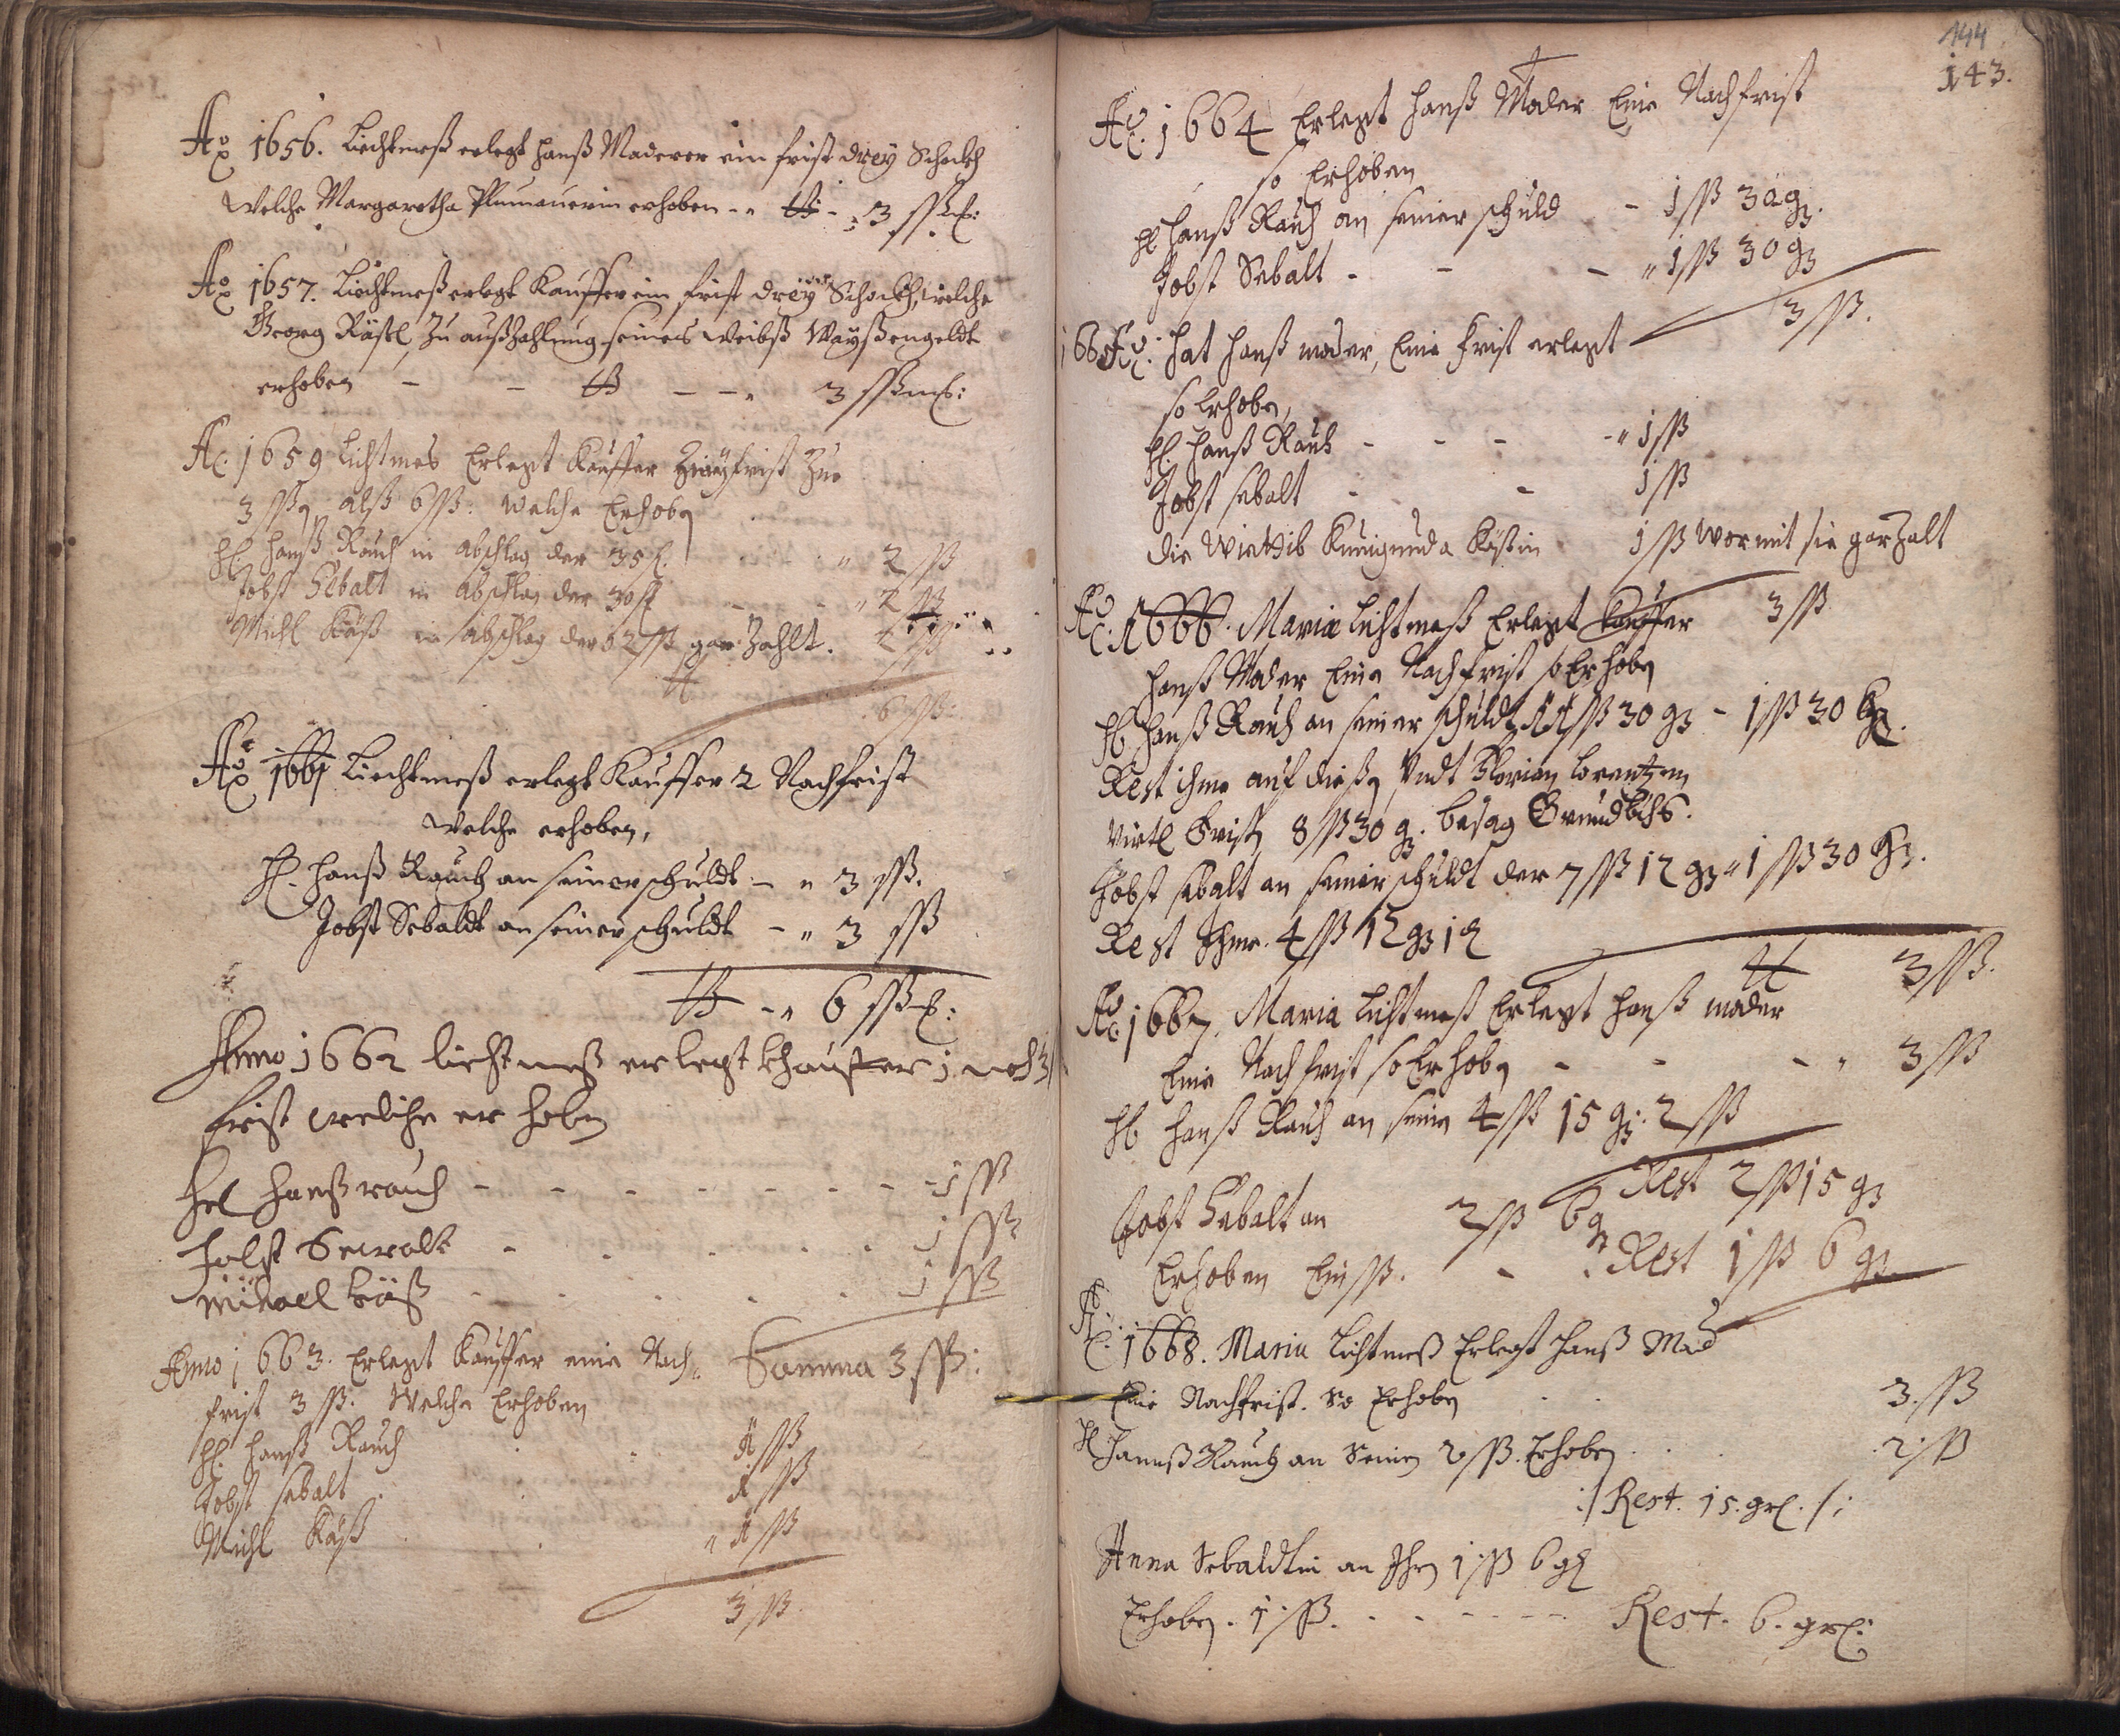 Ao 1656. Liechtmeß erlegt Hanß Maderer ein frist drey Schockh
Welche Margaretha Plumauerin erhoben -- 3 ßß
Ao 1657. Liechtmeß erlegt Kauffer ein frist dreÿ Schockh, welche
Georg Rästl, Zu außzahlung seines Weibß Waÿßengeldt
erhoben - - - - 3 ßß
A 1659 Lichtmes Erlegt Kauffer Zweÿ frist Zue
3 ßß alß 6 ßß. welche Erhoben
H Hanß Rauch in abschlag der 35 " 2 ßß
Jobst Sebalt in abschlag der 30 ß " 2 ßß
Michl Käß in abschlag der 2 ßß gar Zahlt. 2 ßß
6 ßß:
Ao 1661 Liechtmeß erlegt Kauffer 2 Nachfrist
Welche erhoben,
H. Hanß Rauch an seiner schuldt - " 3 ßß.
Jobst Sebaldt an seiner schuldt - " 3 ßß
- " 6 ßß:
Anno 1662 liechtmeß er legt Khauffer 1 noch
frist welche er hoben
Hr Hanß rauch - - - - - - - 1 ßß
Jobst Sewalt - - - - - 1 ßß
Michael Käß - - - - - 1 ßß
Somma 3 ßß:
Anno 1663. Erlegt Kauffer eine Nach
frist 3 ßß. Welche Erhoben
H. Hanß Rauch 1 ßß
Jobst sebalt 1 ßß
Michl Käß " 1 ßß
3 ßß.
144
143.
Ao. 1664 Erlegt Hanß Mader Eine Nachfrist
so Erhoben
H Hanß Rauch an seiner schuld - 1 ßß 30 g.
Jobst Sebalt - - - " 1 ßß 30 g
3 ßß.
1665 Ao. hat Hanß mader, Eine frist erlegt
so Erhoben,
H. Hanß Rauch - - - - " 1 ßß
Jobst sebalt - - 1 ßß
die Wittib Kunigunda Käßin 1 ßß Wormit sie gar Zalt
3 ßß
Ao. 1666. Mariæ Lichtmeß Erlegt Kauffer
Hanß Mader Eine Nachfrist so Erhoben
H Hanß Rauch an seiner schuldt ßß 30 g - 1 ßß 30 g.
Rest ihme auf dießen Undt Florian Lorentzen
Virtl Frist 8 ßß 30 g. besag Grundbuchs.
Jobst sebalt an seiner schuldt der 7 ßß 12 g " 1 ßß 30 g.
Rest Ihme. 4 ßß 12 g 1
3 ßß.
Ao 1667. Maria Lichtmeß Erlegt Hanß mader
Eine Nachfrist so Erhoben - - - " 3 ßß
H Hanß Rauch an seinen 4 ßß 15 g. 2 ßß
Rest 2 ßß 15 g
Jobst Sebalt an 2 ßß 6 g
Erhoben Ein ßß. - . Rest 1 ßß 6 g
Ao. 1668. Maria Lichtmeß Erlegt Hanß Mad
Eine Nachfrist. so Erhoben . . 3 ßß
H Hannß Rauch an Seinen 2 ßß. Erhoben . . . 2 ßß
:/ Rest. 15. gr. /:
Anna Sebaldtin an Ihren 1 ßß 6 g
Erhoben. 1 ßß. - - - - - Rest. 6. gr: